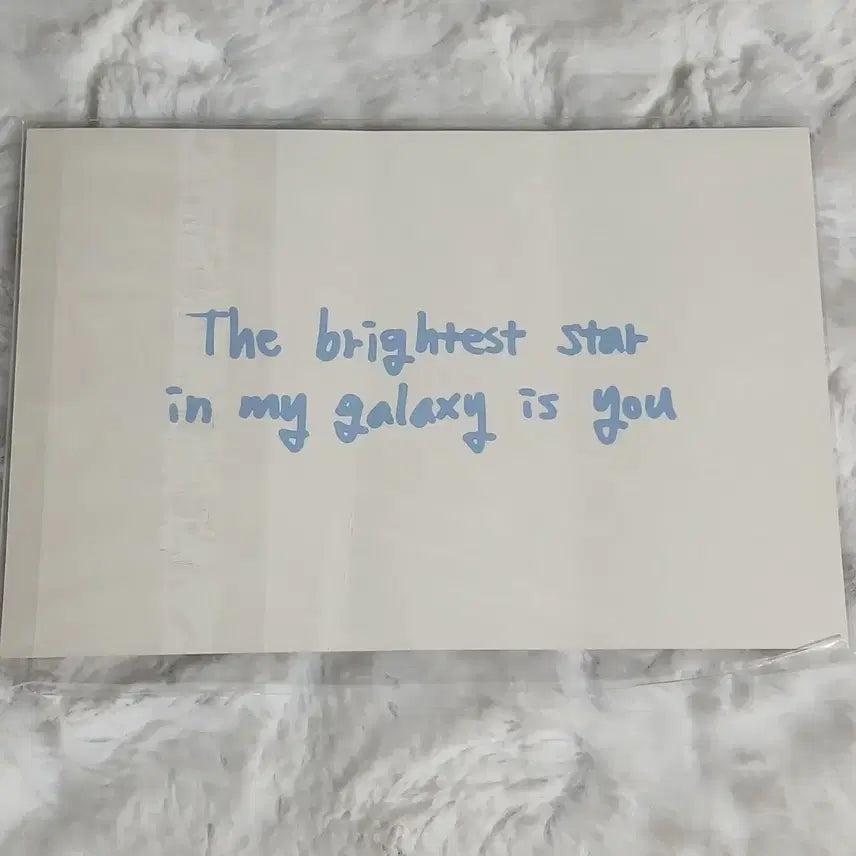 The brightest star
in my galaxy is you